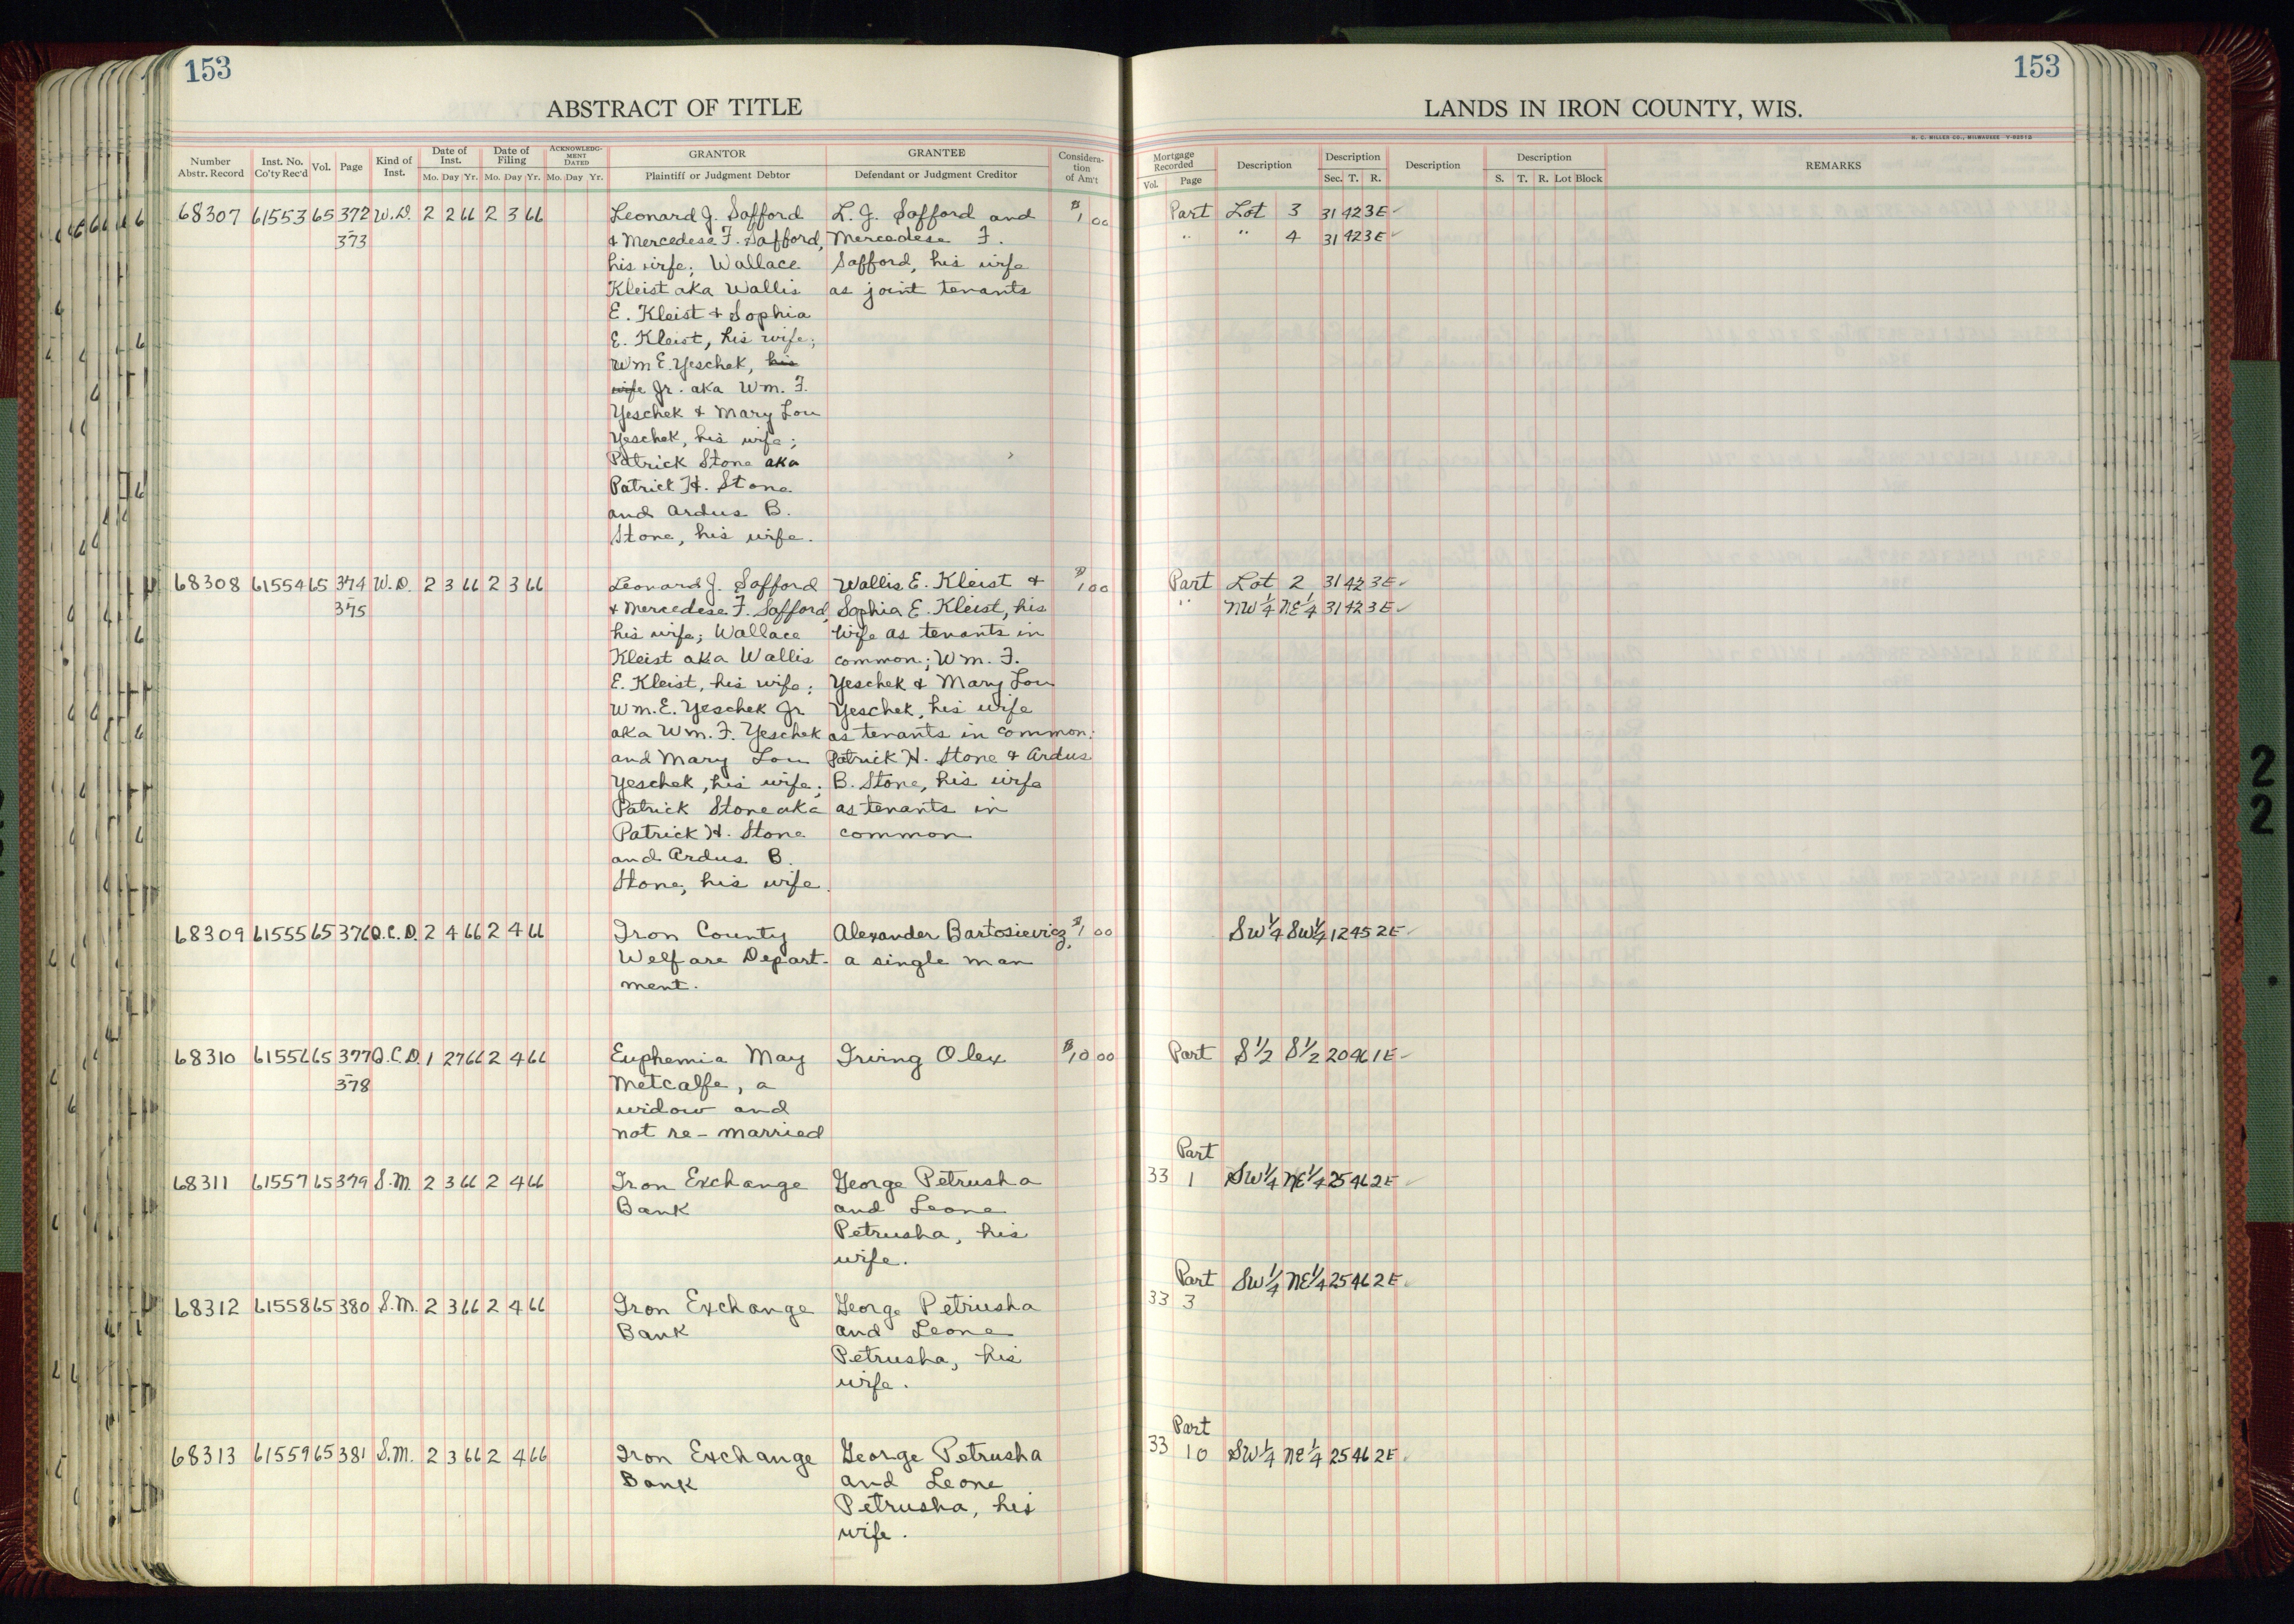 153
153
ABSTRACT OF TITLE
LANDS IN IRON COUNTY, WIS.
H. C. MILLER CO., MILWAUKEE
Number Abstr. Record
Inst. No. Co'ty Rec'd
Vol.
Page
Kind of Inst.
Date of Inst.
Mo. Day Yr.
Date of Filing
Mo. Day Yr.
ACKNOWLEDGMENT DATED
Mo. Day Yr.
GRANTOR
Plaintiff or Judgment Debtor
GRANTEE
Defendant or Judgment Creditor
Considera-
tion
of Am't
Mortgage Recorded
Vol. Page
Description
Description
Sec. T. R.
Description
Description
S. T. R. Lot Block
REMARKS
68307 61553 65 372 W.D. 2 2 66 2 3 66 Leonard J. Safford L. J. Safford and $1 00 Part Lot 3 31 42 3E
- 373 & Mercedese F. Safford, Mercedese F. " " 4 31 42 3E
his wife; Wallace Safford, his wife
Kleist aka Wallis as joint tenants
E. Kleist & Sophia
E. Kleist, his wife;
Wm E. Yeschek, his
wife Jr. aka Wm. F.
Yeschek & Mary Lou
Yeschek, his wife;
Patrick Stone aka
Patrick H. Stone
and Ardus B.
Stone, his wife.
68308 61554 65 374 W.D. 2 3 66 2 3 66 Leonard J. Safford Wallis E. Kleist & $1 00 Part Lot 2 31 42 3E
- 375 & Mercedese F. Safford, Sophia E. Kleist, his " NW 1/4 NE 1/4 31 42 3E
his wife; Wallace wife as tenants in
Kleist aka Wallis common; Wm. F.
E. Kleist, his wife; Yeschek & Mary Lou
Wm. E. Yeschek Jr Yeschek, his wife
aka Wm. F. Yeschek as tenants in common;
and Mary Lou Patrick H. Stone & Ardus
Yeschek, his wife; B. Stone, his wife
Patrick Stone aka as tenants in
Patrick H. Stone common
and Ardus B.
Stone, his wife.
68309 61555 65 376 Q.C.D. 2 4 66 2 4 66 Iron County Alexander Bartosievicz, $1 00 SW 1/4 SW 1/4 12 45 2E
Welfare Depart- a single man
ment.
68310 61556 65 377 Q.C.D. 1 27 66 2 4 66 Euphemia May Irving Olex $10 00 Part S 1/2 S 1/2 20 46 1E
- 378 Metcalfe, a
widow and
not re-married
Part
68311 61557 65 379 S.M. 2 3 66 2 4 66 Iron Exchange George Petrusha 33 1 SW 1/4 NE 1/4 25 46 2E
Bank and Leone
Petrusha, his
wife.
Part SW 1/4 NE 1/4 25 46 2E
68312 61558 65 380 S.M. 2 3 66 2 4 66 Iron Exchange George Petrusha 33 3
Bank and Leone
Petrusha, his
wife.
Part
68313 61559 65 381 S.M. 2 3 66 2 4 66 Iron Exchange George Petrusha 33 10 SW 1/4 NE 1/4 25 46 2E
Bank and Leone
Petrusha, his
wife.
2
2